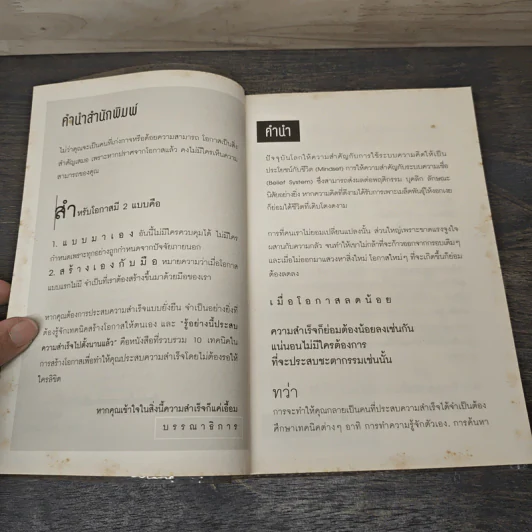 คำนำสำนักพิมพ์
ไม่ว่าคุณจะเป็นคนที่เก่งกาจหรือด้อยความสามารถ โอกาสเป็นสิ่ง
สำคัญเสมอ เพราะหากปราศจากโอกาสแล้ว คงไม่มีใครเห็นความ
สามารถของคุณ
สำหรับโอกาสมี 2 แบบคือ
1. แบบมาเอง อันนี้ไม่มีใครควบคุมได้ ไม่มีใคร
กำหนดเพราะทุกอย่างถูกกำหนดจากปัจจัยภายนอก
2. สร้างเองกับมือ หมายความว่าเมื่อโอกาส
แบบแรกไม่มี จำเป็นที่เราต้องสร้างขึ้นมาด้วยมือของเรา
หากคุณต้องการประสบความสำเร็จแบบยั่งยืน จำเป็นอย่างยิ่งที่
ต้องรู้จักเทคนิคสร้างโอกาสให้ตนเอง และ "รู้อย่างนี้ประสบ
ความสำเร็จไปตั้งนานแล้ว" คือหนังสือที่รวบรวม 10 เทคนิคใน
การสร้างโอกาสเพื่อทำให้คุณประสบความสำเร็จโดยไม่ต้องรอให้
ใครลิขิต
หากคุณเข้าใจในสิ่งนี้ความสำเร็จก็แค่เอื้อม
บรรณาธิการ
คำนำ
ปัจจุบันโลกให้ความสำคัญกับการใช้ระบบความคิดให้เป็น
ประโยชน์กับชีวิต (Mindset) การให้ความสำคัญกับระบบความเชื่อ
(Belief System) ซึ่งสามารถส่งผลต่อพฤติกรรม บุคลิก ลักษณะ
นิสัยอย่างยิ่ง หากความคิดที่ดีงามได้รับการเพาะเมล็ดพันธุ์ให้งอกเงย
ก็ย่อมได้ชีวิตที่เติบโตงดงาม
การที่คนเราไม่ยอมเปลี่ยนแปลงนั้น ส่วนใหญ่เพราะขาดแรงจูงใจ
ผสานกับความกลัว จนทำให้เขาไม่กล้าที่จะก้าวออกจากกรอบเดิมๆ
และเมื่อไม่ออกมาแสวงหาสิ่งใหม่ โอกาสใหม่ๆ ที่จะเกิดขึ้นก็ย่อม
ต้องลดลง
เมื่อโอกาสลดน้อย
ความสำเร็จก็ย่อมต้องน้อยลงเช่นกัน
แน่นอนไม่มีใครต้องการ
ที่จะประสบชะตากรรมเช่นนั้น
ทว่า
การจะทำให้คุณกลายเป็นคนที่ประสบความสำเร็จได้จำเป็นต้อง
ศึกษาเทคนิคต่างๆ อาทิ การทำความรู้จักตัวเอง, การค้นหา